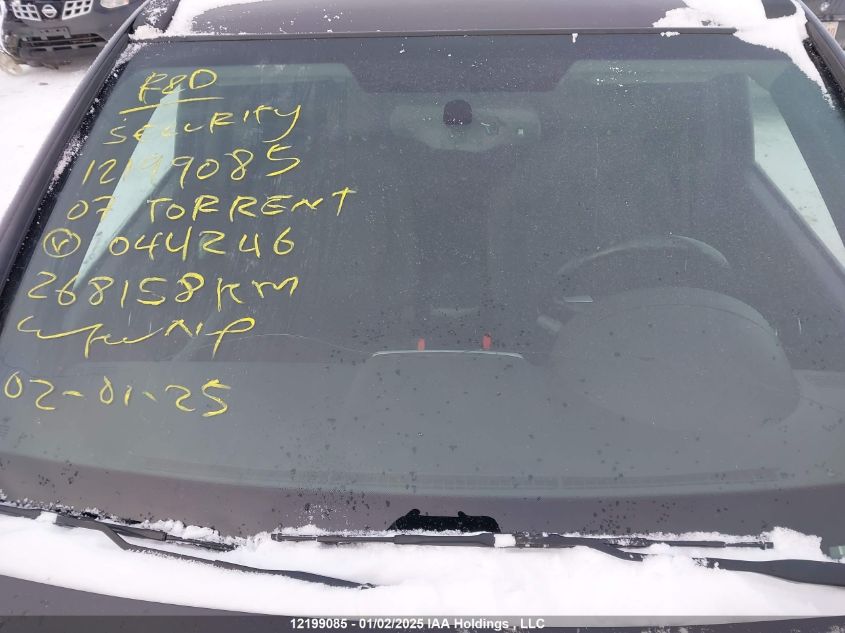 R&D
SECURITY
12199085
07 TORRENT
Ⓥ 044246
268158KM
02-01-25
12199085 - 01/02/2025 IAA Holdings , LLC